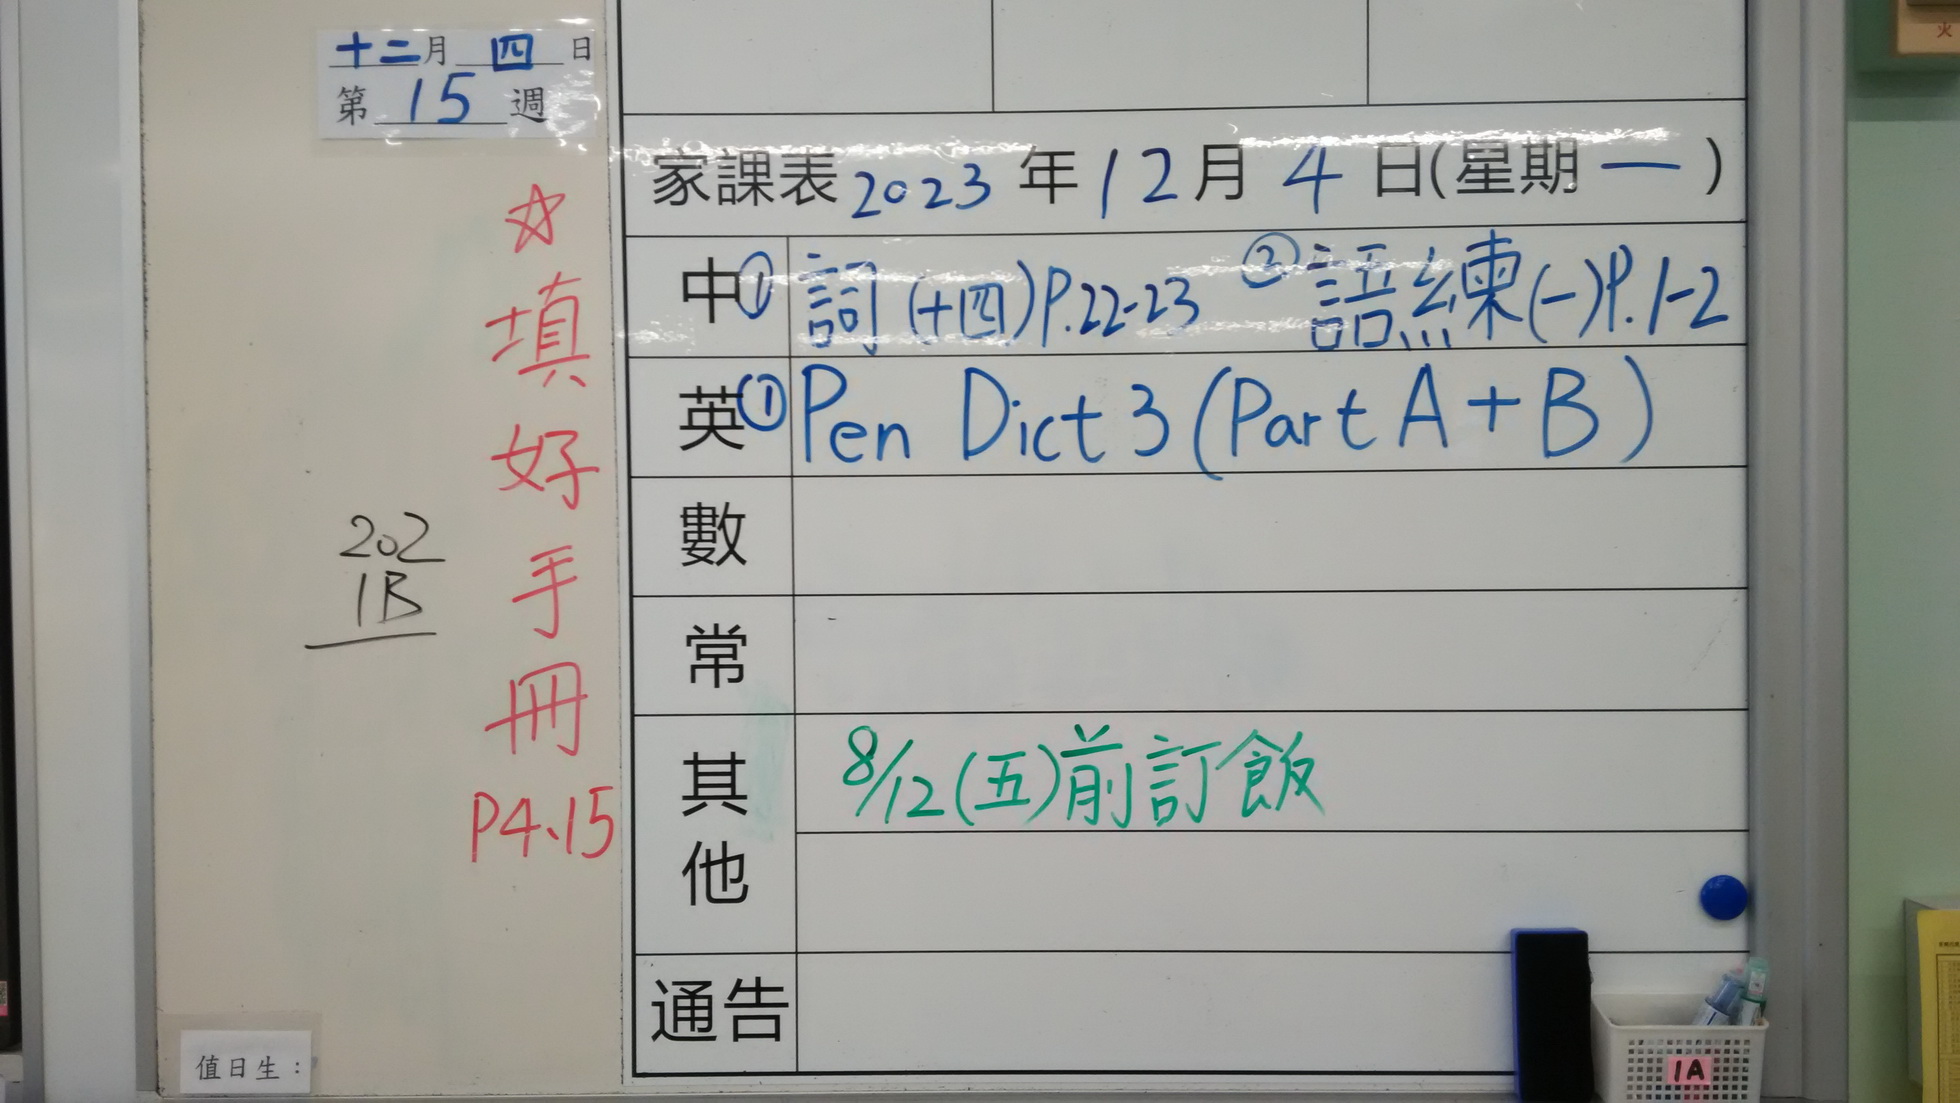 十二月 四 日
第 15 週
☆填好手冊
P4、15
202
1B
值日生：
家課表 2023 年 12 月 4 日(星期一)
中 ① 詞(十四)P.22-23 ② 語練(一)P.1-2
英 ① Pen Dict 3 (Part A + B)
數
常
其他 8/12(五)前訂飯
通告
1A
火